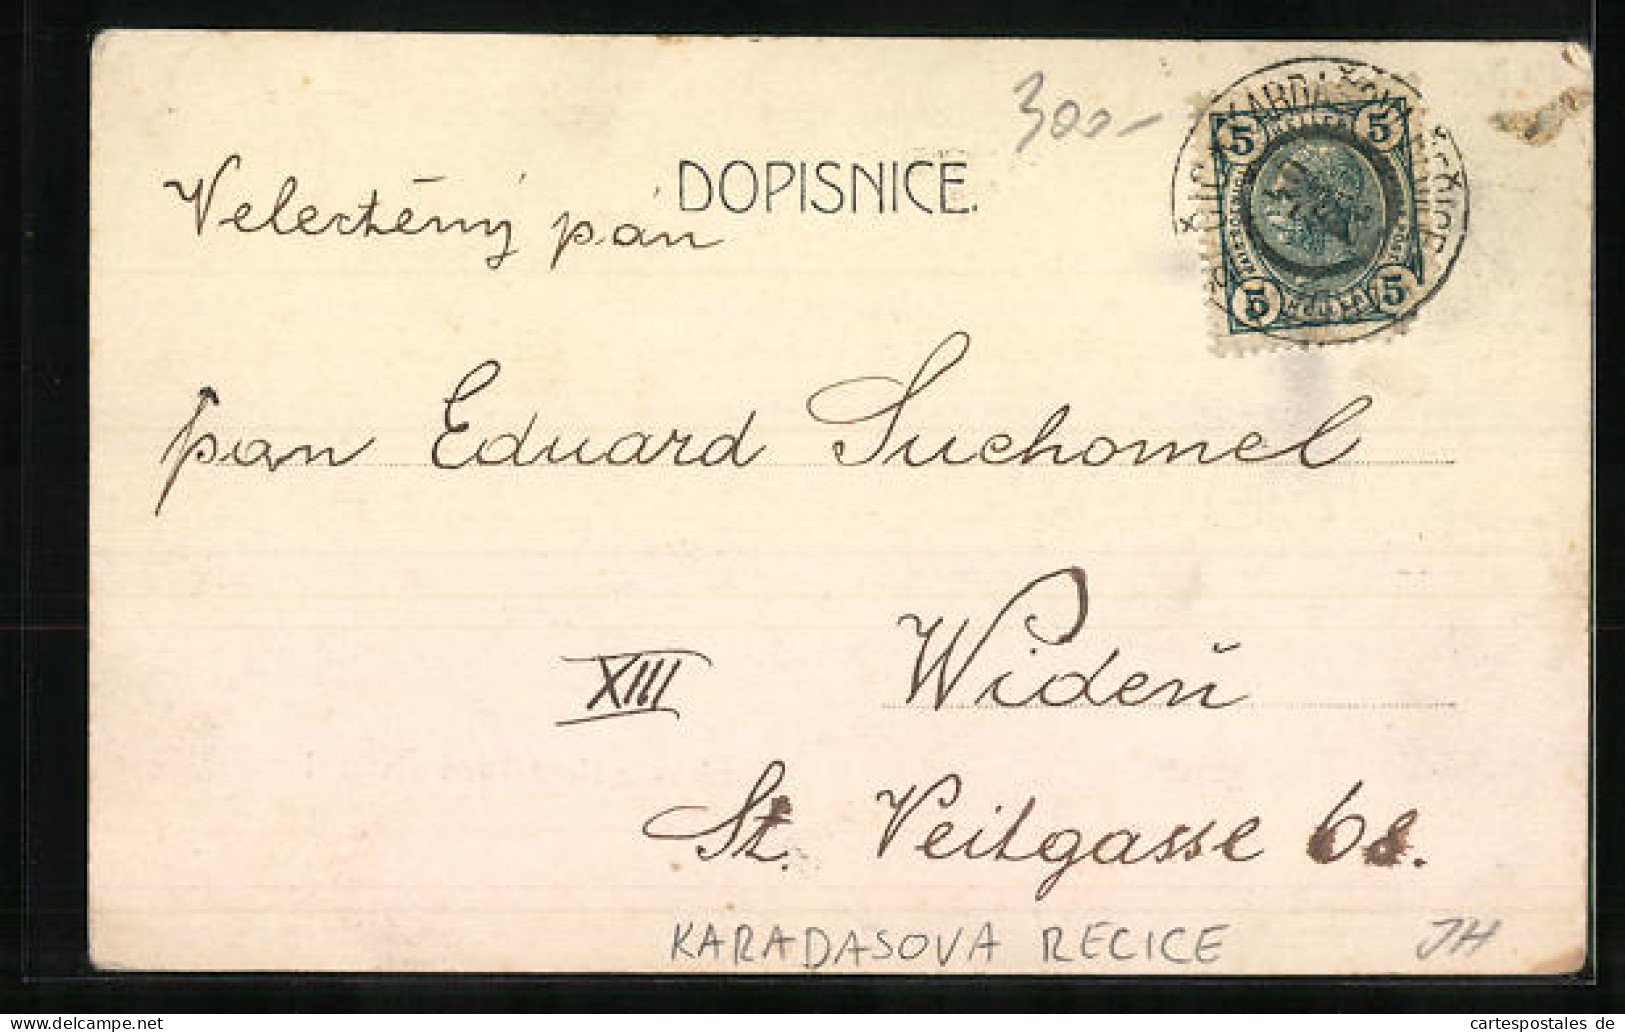 300-
DOPISNICE.
5 5
5 5
Velectěný pán
pan Eduard Suchomel
XIII Wideň
St. Veitgasse 68.
KARADASOVA RECICE
JH
cartespostales de